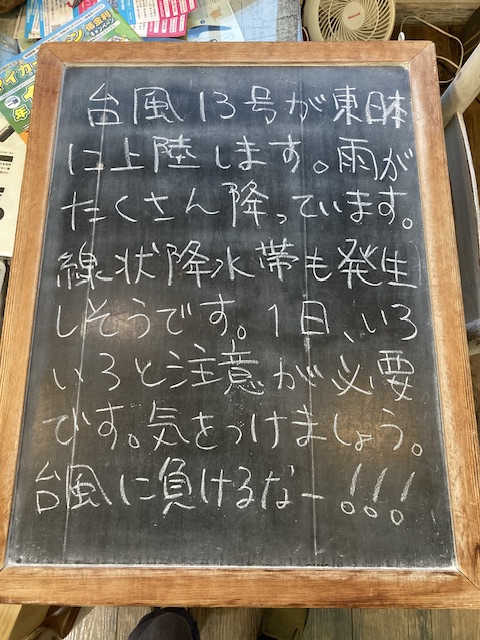 台風13号が東日本
に上陸します。雨が
たくさん降っています。
線状降水帯も発生
しそうです。1日、いろ
いろと注意が必要
です。気をつけましょう。
台風に負けるなー!!!